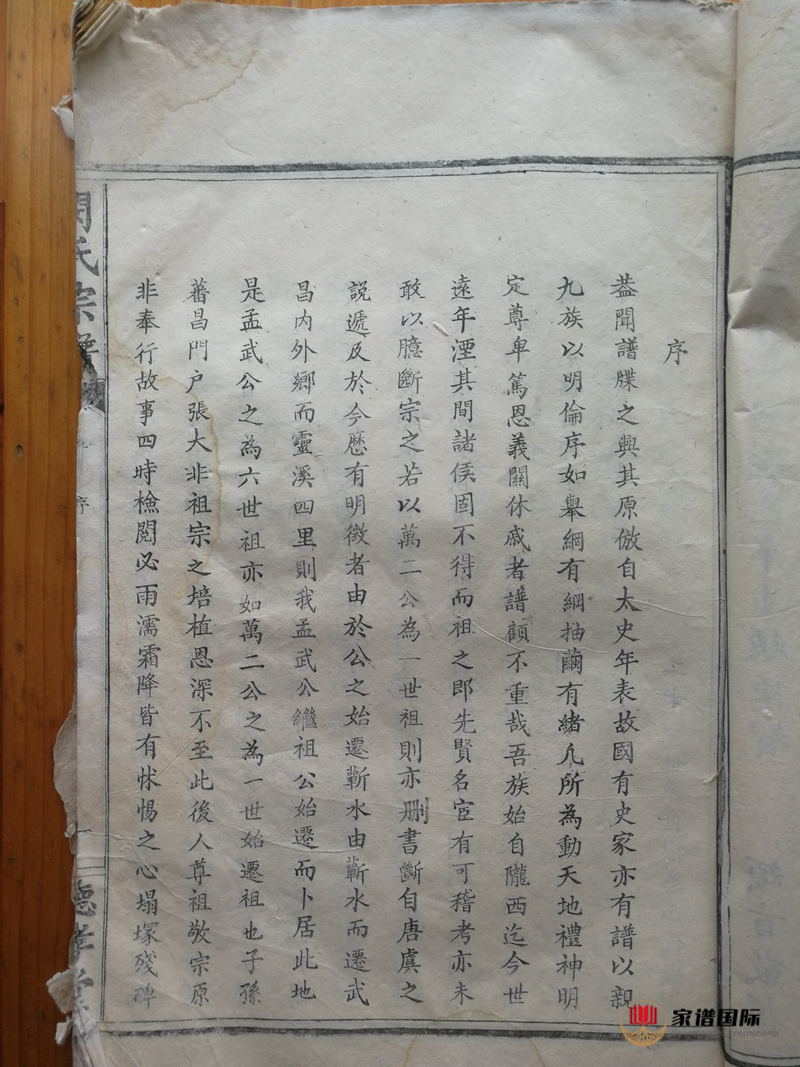 序
蓋聞譜牒之興其原倣自太史年表故國有史家亦有譜以親
九族以明倫序如舉綱有綱抽繭有緒凡所為動天地禮神明
定尊卑篤恩義關休戚者譜顧不重哉吾族始自隴西迄今世
遠年湮其間諸侯固不得而祖之即先賢名宦有可稽考亦未
敢以臆斷宗之若以萬二公為一世祖則亦册書斷自唐虞之
說遞及於今歷有明徵者由於公之始遷蘄水由蘄水而遷武
昌内外鄉而靈溪四里則我孟武公繼祖公始遷而卜居此地
是孟武公之為六世祖亦如萬二公之為一世始遷祖也子孫
蕃昌門户張大非祖宗之培植恩深不至此後人尊祖敬宗原
非奉行故事四時檢閲必雨濡霜降皆有怵惕之心塌塚殘碑
氏宗
序
一
德孝堂
家谱国际